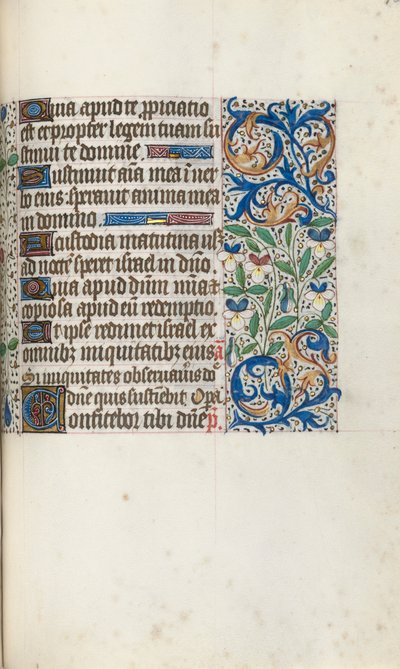 Quia apud te ppiciatio
est et propter legem tuam su
stinui te domine
Sustinuit aīa mea ī ver
bo eius sperauit anima mea
in domino
A custodia matutina usq
ad noctē speret israel in dn̄o
Quia apud dūm mīa et
copiosa apud eū redemptio
Et ipse redimet israel ex
omnibz iniquitatibz eius a
Si iniquitates obseruaueris do
dn̄e quis sustinebit Opa
Confitebor tibi dn̄e p.